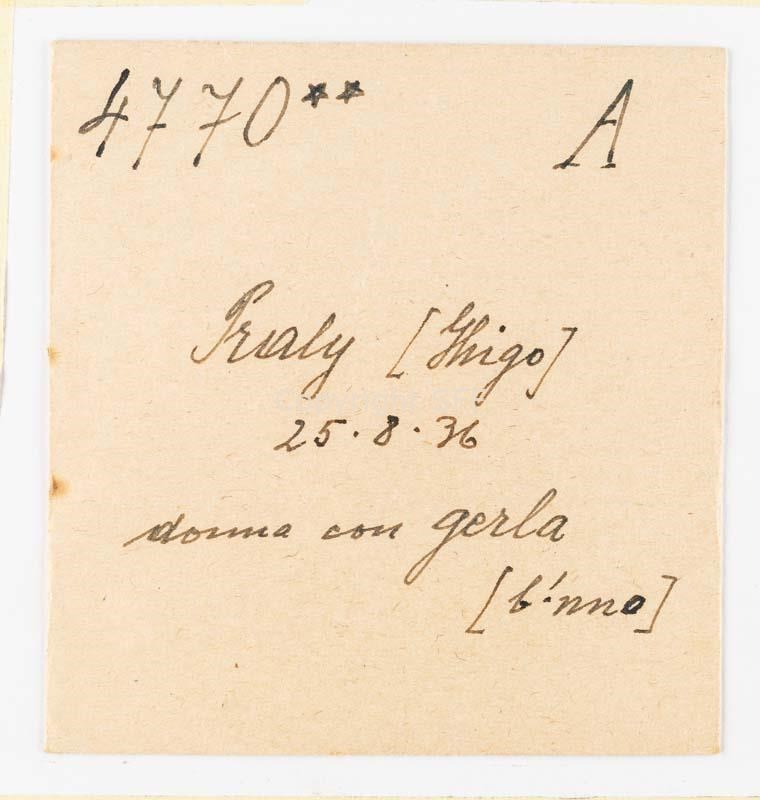 4770** A
Praly [Ghigo]
25.8.36
donna con gerla